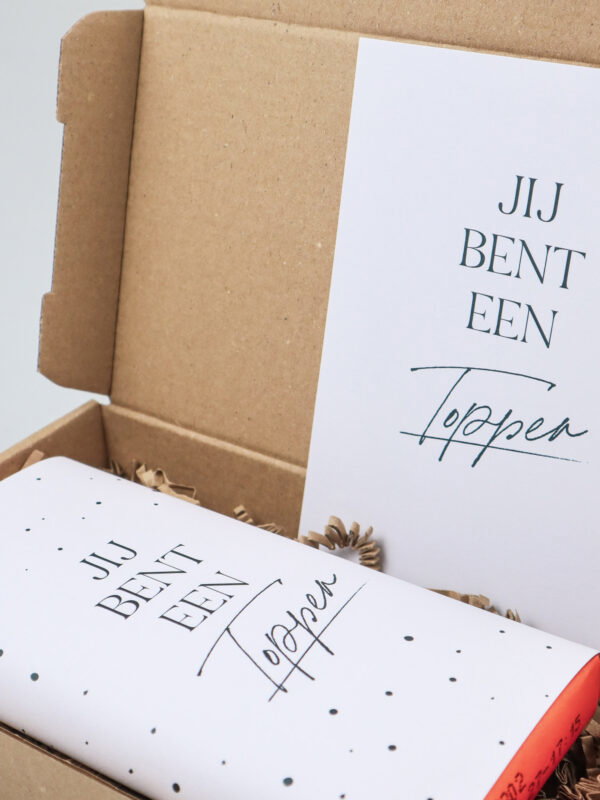 JIJ
BENT
EEN
Topper
JIJ
BENT
EEN
Topper